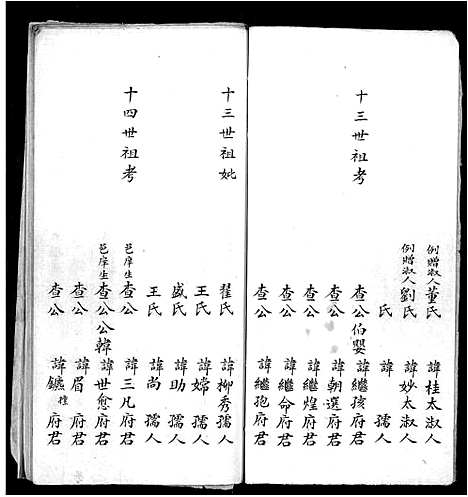 例贈淑人董氏 諱桂太淑人
例贈淑人劉氏 諱妙太淑人
氏 諱 孺人
十三世祖考 查公伯嬰 諱繼孩府君
查公 諱朝選府君
查公 諱繼煌府君
查公 諱繼命府君
查公 諱繼孢府君
十三世祖妣 翟氏 諱柳秀孺人
王氏 諱嫦孺人
盛氏 諱助孺人
王氏 諱尚孺人
十四世祖考 邑庠生 查公 諱三凡府君
邑庠生 查公公韓 諱世愈府君
查公 諱眉府君
查公 諱鑣 府君